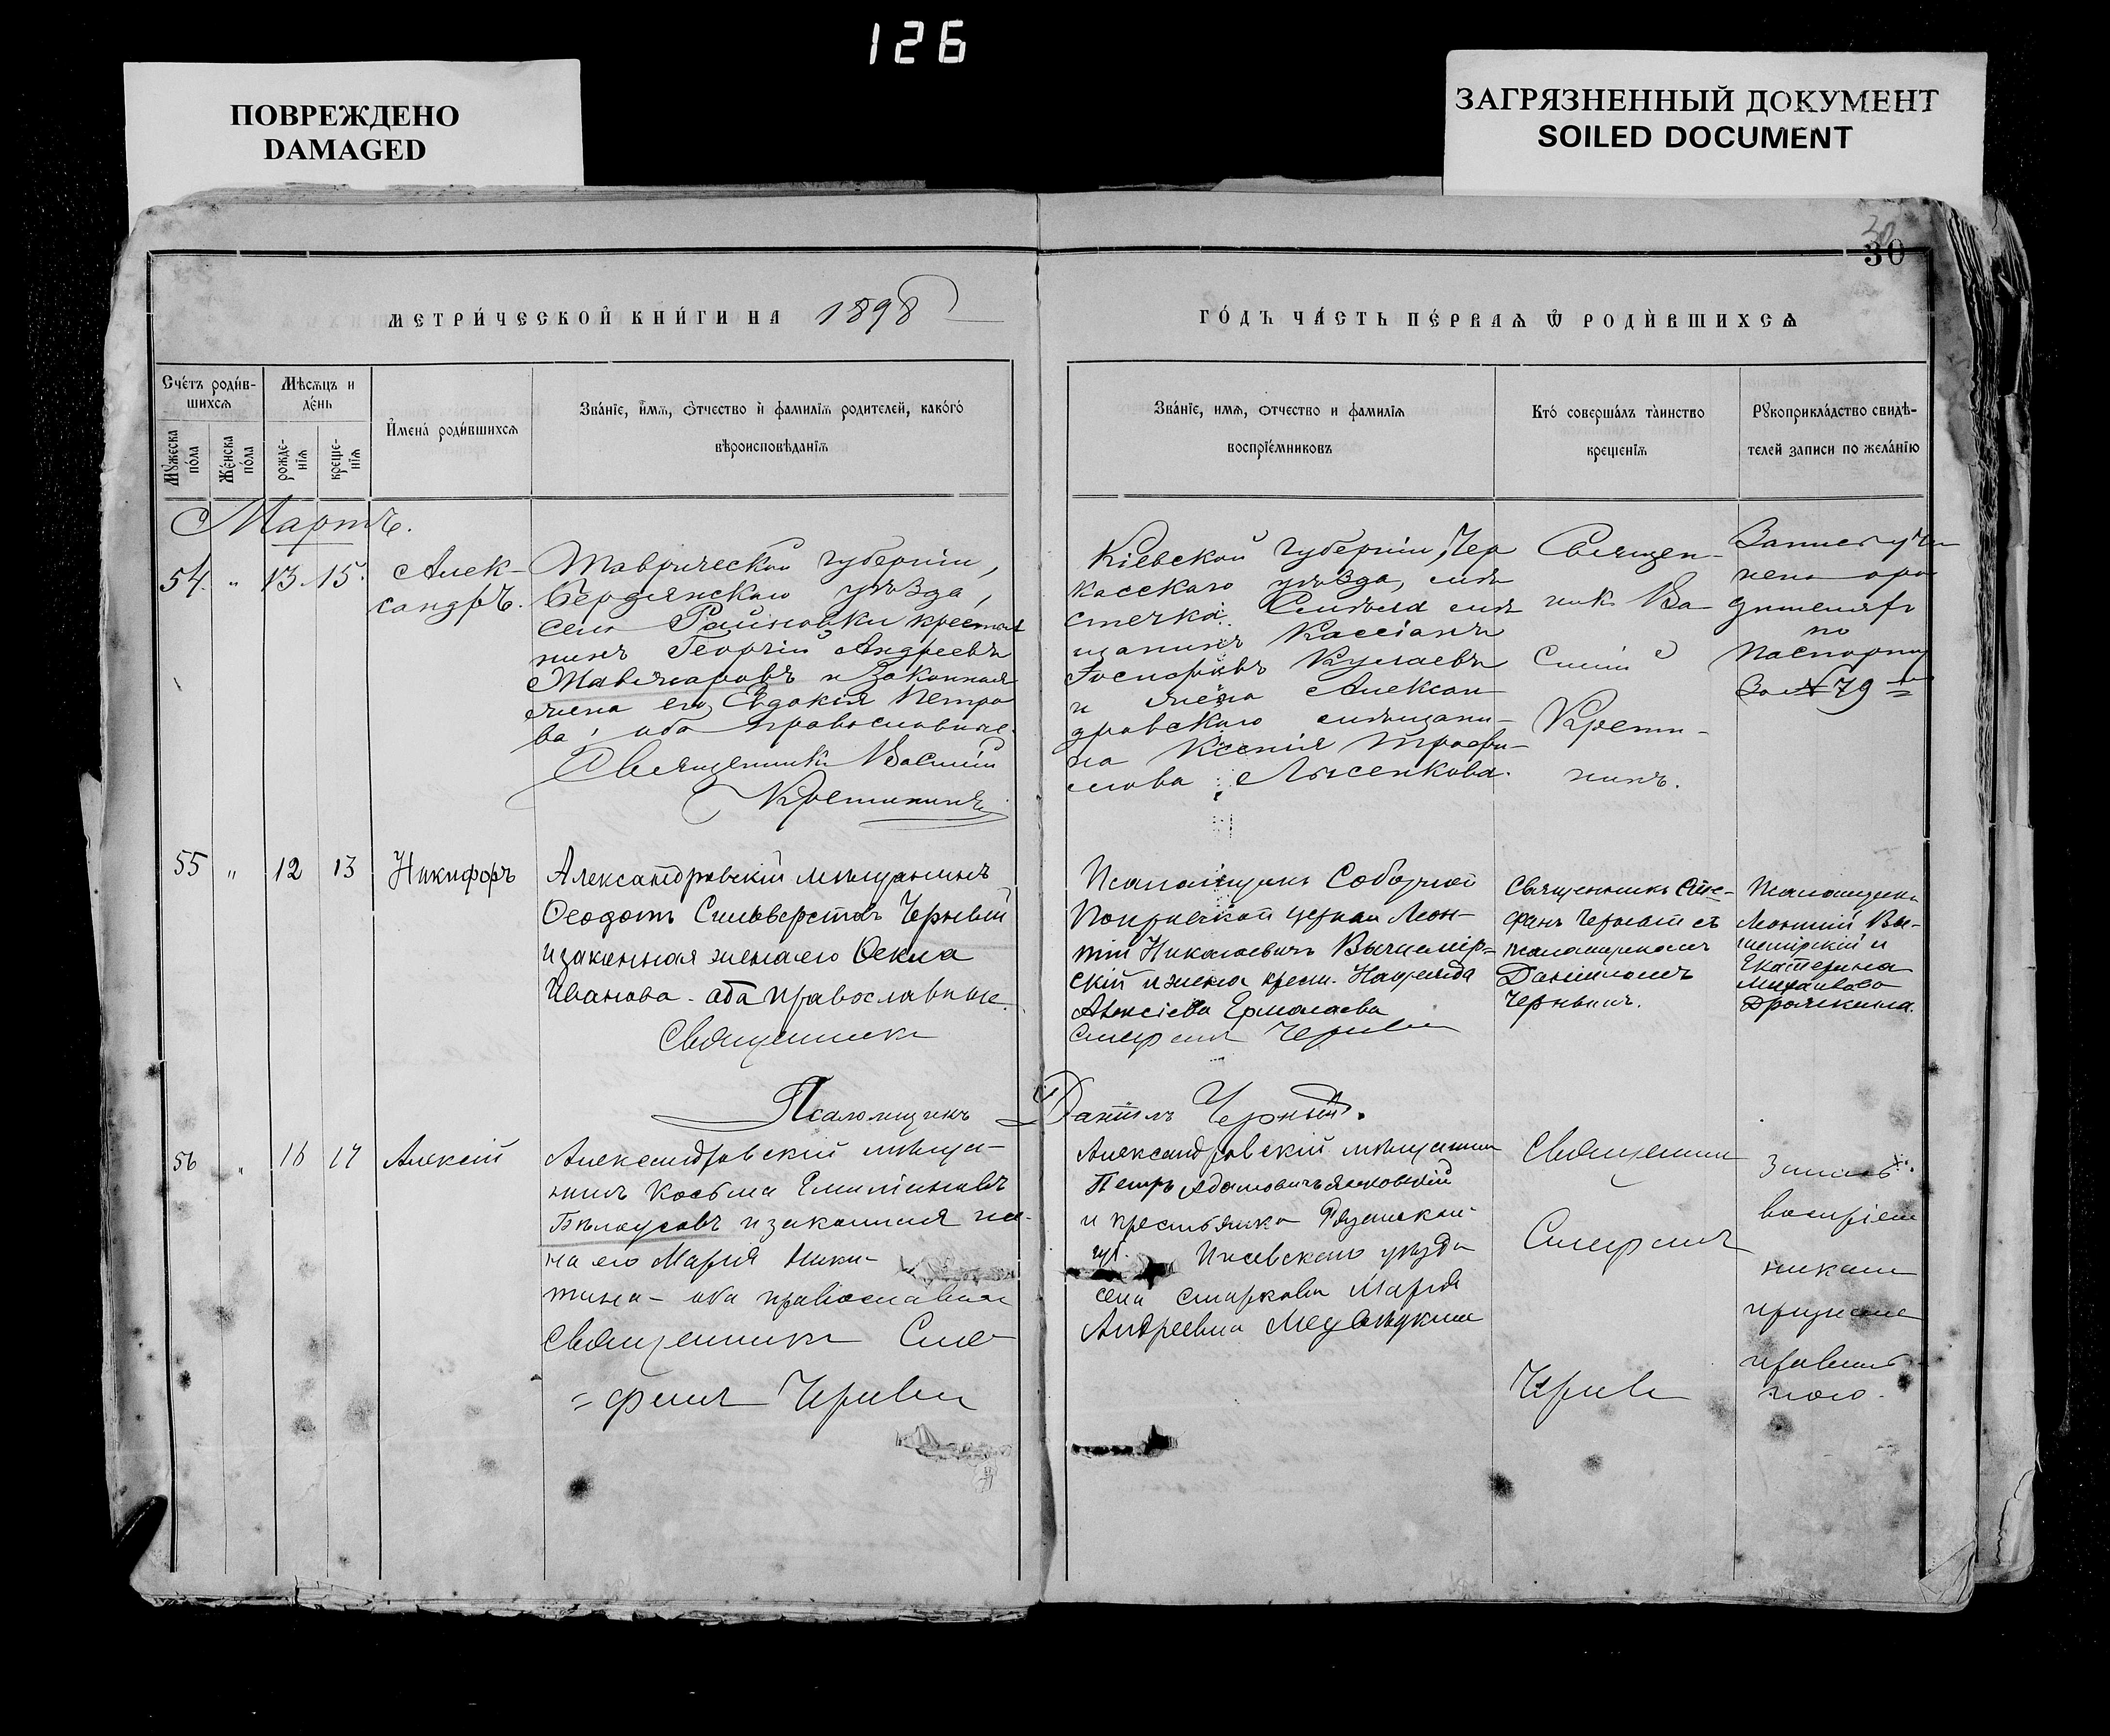 126
ПОВРЕЖДЕНО
DAMAGED
ЗАГРЯЗНЕННЫЙ ДОКУМЕНТ
SOILED DOCUMENT
30
30
МЕТРИ́ЧЕСКОЙ КНИ́ГИ НА 1898
ГО́ДЪ ЧА́СТЬ ПЕ́РВАѦ Ѽ РОДИ́ВШИХСѦ
Сче́тъ роди́в-
шихсѧ
Мѣсѧцъ и
де́нь
Мꙋ́жеска
по́ла
Же́нска
по́ла
рожде-
нїѧ
креще-
нїѧ
И҆мена̀ роди́вшихсѧ
Зва́нїе, и҆́мѧ, ѻ҆́тчество и҆ фамилїѧ родителей, како́гѡ
вѣроисповѣданїѧ
Зва́нїе, имѧ, отчество и фамилїѧ
воспрїе́мниковъ
Кто́ соверша́лъ та̀инство
крещенїѧ
Рꙋкоприкла́дство свидѣ-
телей записи по жела́нїю
Мартъ.
54. " 13. 15. Алек-
сандръ.
Таврической губерніи,
Бердянскаго уѣзда,
село Райновки крестья
нинъ Георгій Андреевъ
и законная
жена его Евдокія Петро
ва, оба православные.
Священникъ Василій
Кретининъ
Кіевской губерніи, Чер
касскаго уѣзда, мѣ
стечка Смѣла мѣ
щанинъ Кассіанъ
Кулаевъ
и жена Алексан
дровскаго мѣщани-
на Ксенія Трофи-
мова Лысенкова.
Священ-
никъ Ва
силій
Крети-
нинъ.
Запись учи
нена
по
паспорту
за № 79
55 " 12 13 Никифоръ
Александровскій мѣщанинъ
Ѳеодотъ Сильверстовъ Черный
и законная жена его Ѳекла
Иванова - оба православные.
Священникъ
Псаломщикъ Соборной
Покровской церкви Леон-
тій Николаевичъ
скій и жена крест. Надежда
Алексіева Ермолаева
Стефанъ Черный
Священникъ Сте-
фанъ Черный съ
псаломщикомъ
Даніиломъ
Чернымъ.
Псаломщикъ
Леонтій Вы-
и
Екатерина
Михайлова
Псаломщикъ Даніилъ Черный.
56 " 16 17 Алексій
Александровскій мѣща-
нинъ Косьма Емиліановъ
Бѣлоусовъ и законная же-
на его Марія Ники-
тина - оба православные
Священникъ Сте-
=фанъ Черный
Александровскій мѣщанинъ
Петръ Адамовичъ Ясковскій
и крестьянка Рязанской
губ. уѣзда
села Старкова Марія
Андреевна
Священникъ
Стефанъ
Черный
Запись
воспріем
никами
признана
правиль
ною.